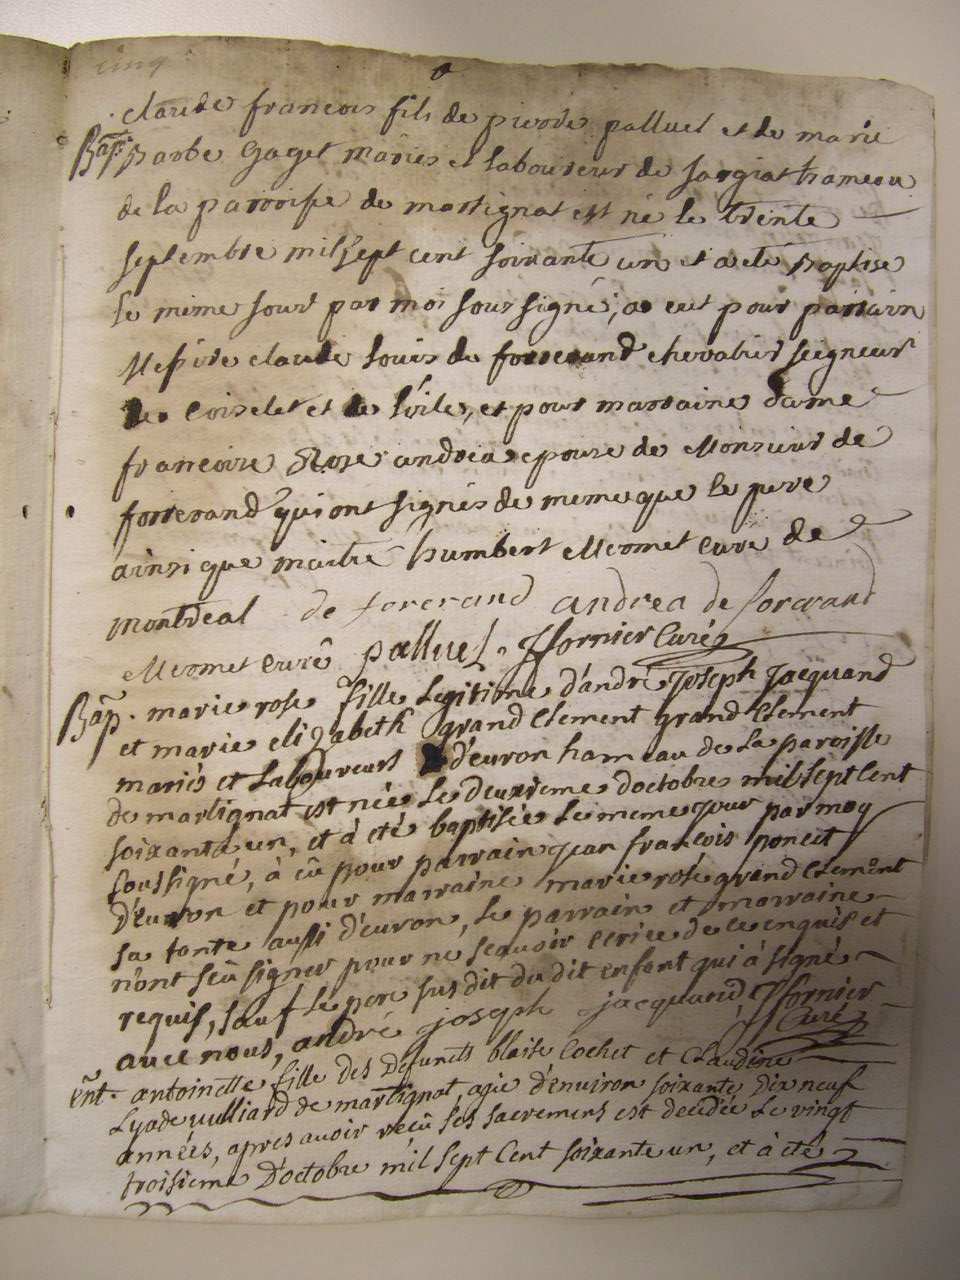 cinq
claude francois fils de pierre palluel et de marie
Bap. Barbe Gaget mariés et laboureur de sargiat hameau
de la parroisse de martignat est né le trente
septembre mil sept cent soixante un et a eté Baptise
le meme jour par moi soussigné, a eut pour parrain
Messire claude louis de forcrand chevalier seigneur
de Coiselet et de l'isle, et pour marraine dame
francoise Rose andrea epouse de Monsieur de
forcrand qui ont signés de meme que le pere
ainsi que maitre humbert Mermet curé de
montreal de forcrand andrea de forcrand
Mermet curé palluel. Jfornier Curé
Bap. marie rose fille legitime d'andré joseph jacquand
et marie elizabeth grand clement grand clement
mariés et Laboureurs d'evron hameau de La paroisse
de martignat est née Le deuxieme d'octobre mil sept Cent
soixante un, et à eté baptisée Le meme jour par moy
soussigné, à eû pour parrain jean françois poncet
d'evron et pour marraine marie rose grand clement
sa tante aussi d'evron, Le parrain et marraine
n'ont seû signer pour ne scavoir ecrire de ce enquis et
requis, sauf Le pere susdit du dit enfant qui à signé
avec nous, andré joseph jacquand, Jfornier
Curé
ent. antoinette fille des defunts blaise Cochet et Claudine
Lyadevulliard de martignat, agée d'environ soixante dix neuf
années, apres avoir reçû ses sacremens est decedée Le vingt
troisieme d'octobre mil sept Cent soixante un, et à eté